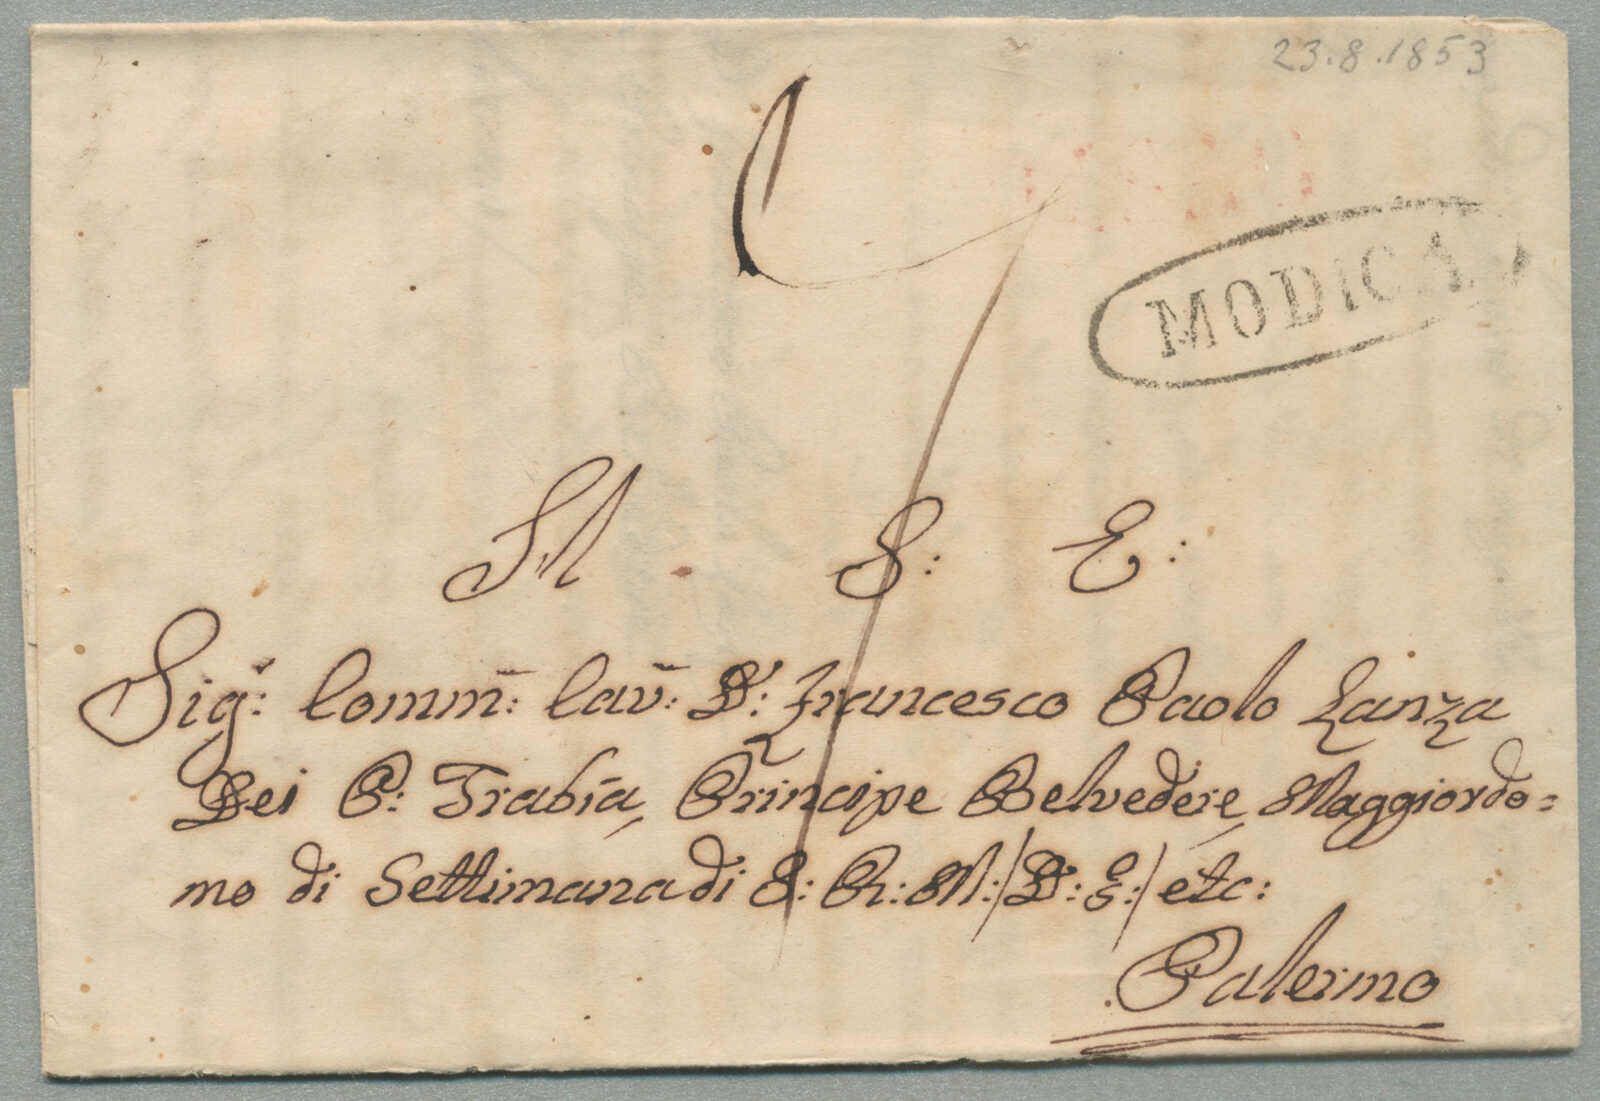 23.8.1853
MODICA
A S: E:
Sigr: Comm: Cav: D: Francesco Paolo Lanza
Dei P: Trabia, Principe Belvedere, Maggiordo=
mo di Settimana di S: R: M:/D: G:/ etc:
Palermo